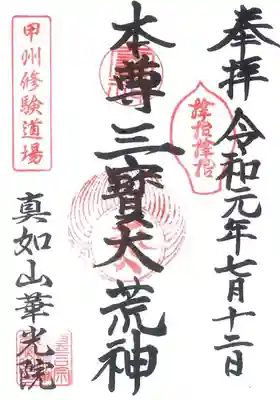 奉拝 令和元年七月十二日
本尊 三寳大荒神
甲州修験道場
真如山華光院